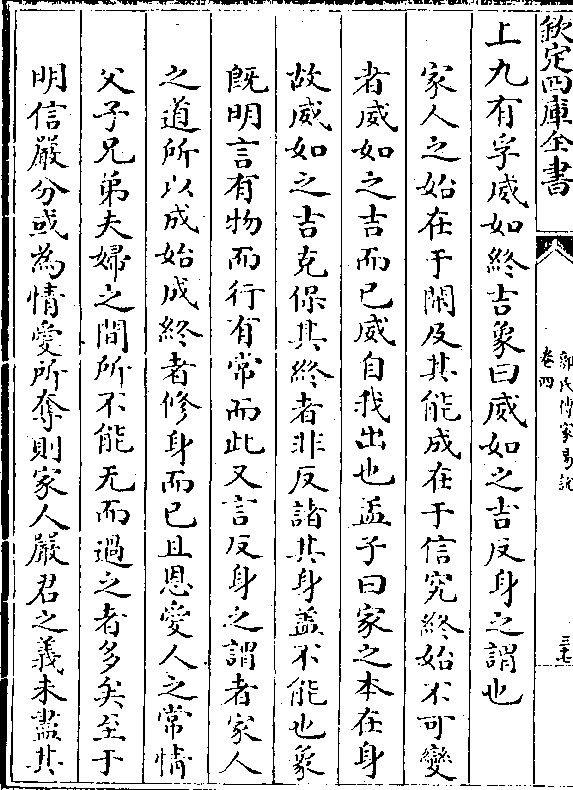 欽定四庫全書
郭氏傳家易說
卷四
三十七
上九有孚威如終吉象曰威如之吉反身之謂也
家人之始在于閑及其能成在于信究終始不可變
者威如之吉而已威自我出也孟子曰家之本在身
故威如之吉克保其終者非反諸其身蓋不能也象
既明言有物而行有常而此又言反身之謂者家人
之道所以成始成終者修身而已且恩愛人之常情
父子兄弟夫婦之間所不能无而過之者多矣至于
明信嚴分或為情愛所奪則家人嚴君之義未盡其